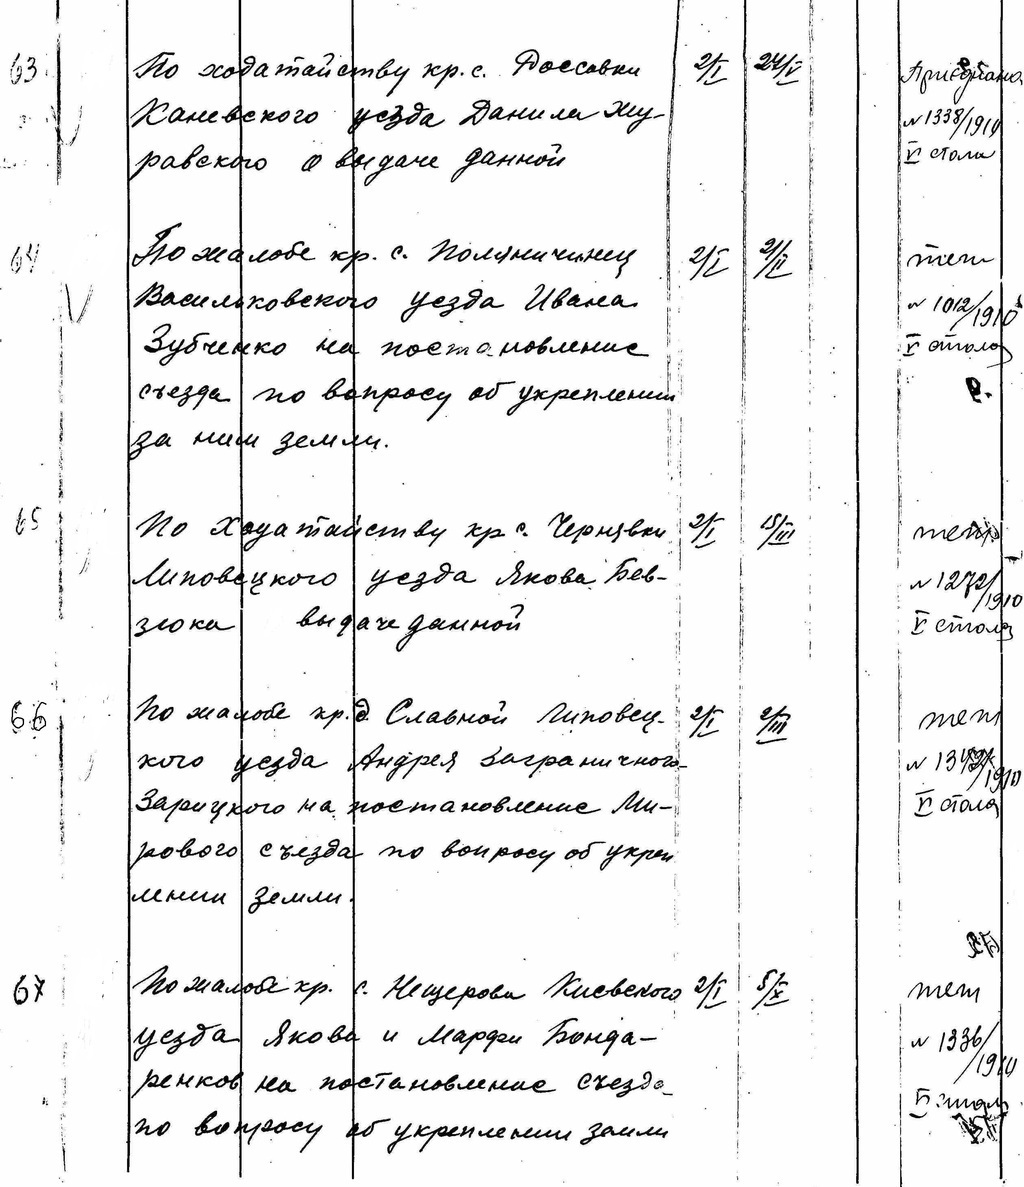 63 По ходатайству кр. с. Россавки 2/I 24/V Присоединено
Каневского уезда Данила Жу- N 1338/1910
равского о выдаче данной V стола
64 По жалобе кр. с. Поляничинец 2/I 21/II тем
Васильковского уезда Ивана N 1012/1910
Зубченко на постановление V стола
съезда по вопросу об укреплении
за ним земли.
65 По ходатайству кр с. Чернявки 2/I 15/III
Липовецкого уезда Якова Бев- N 1272/1910
зюка выдаче данной V стола
66 По жалобе кр. д. Славной Липовец- 2/I 2/III тем
кого уезда Андрея Заграничного-
Зарицкого на постановление Ми- V стола
рового съезда по вопросу об укреп
лении земли.
67 По жалобе кр. с. Нещерова Киевского 2/I 5/X тем
уезда Якова и Марфы Бонда- N 1336/1910
ренков на постановление съезда
по вопросу об укреплении земли